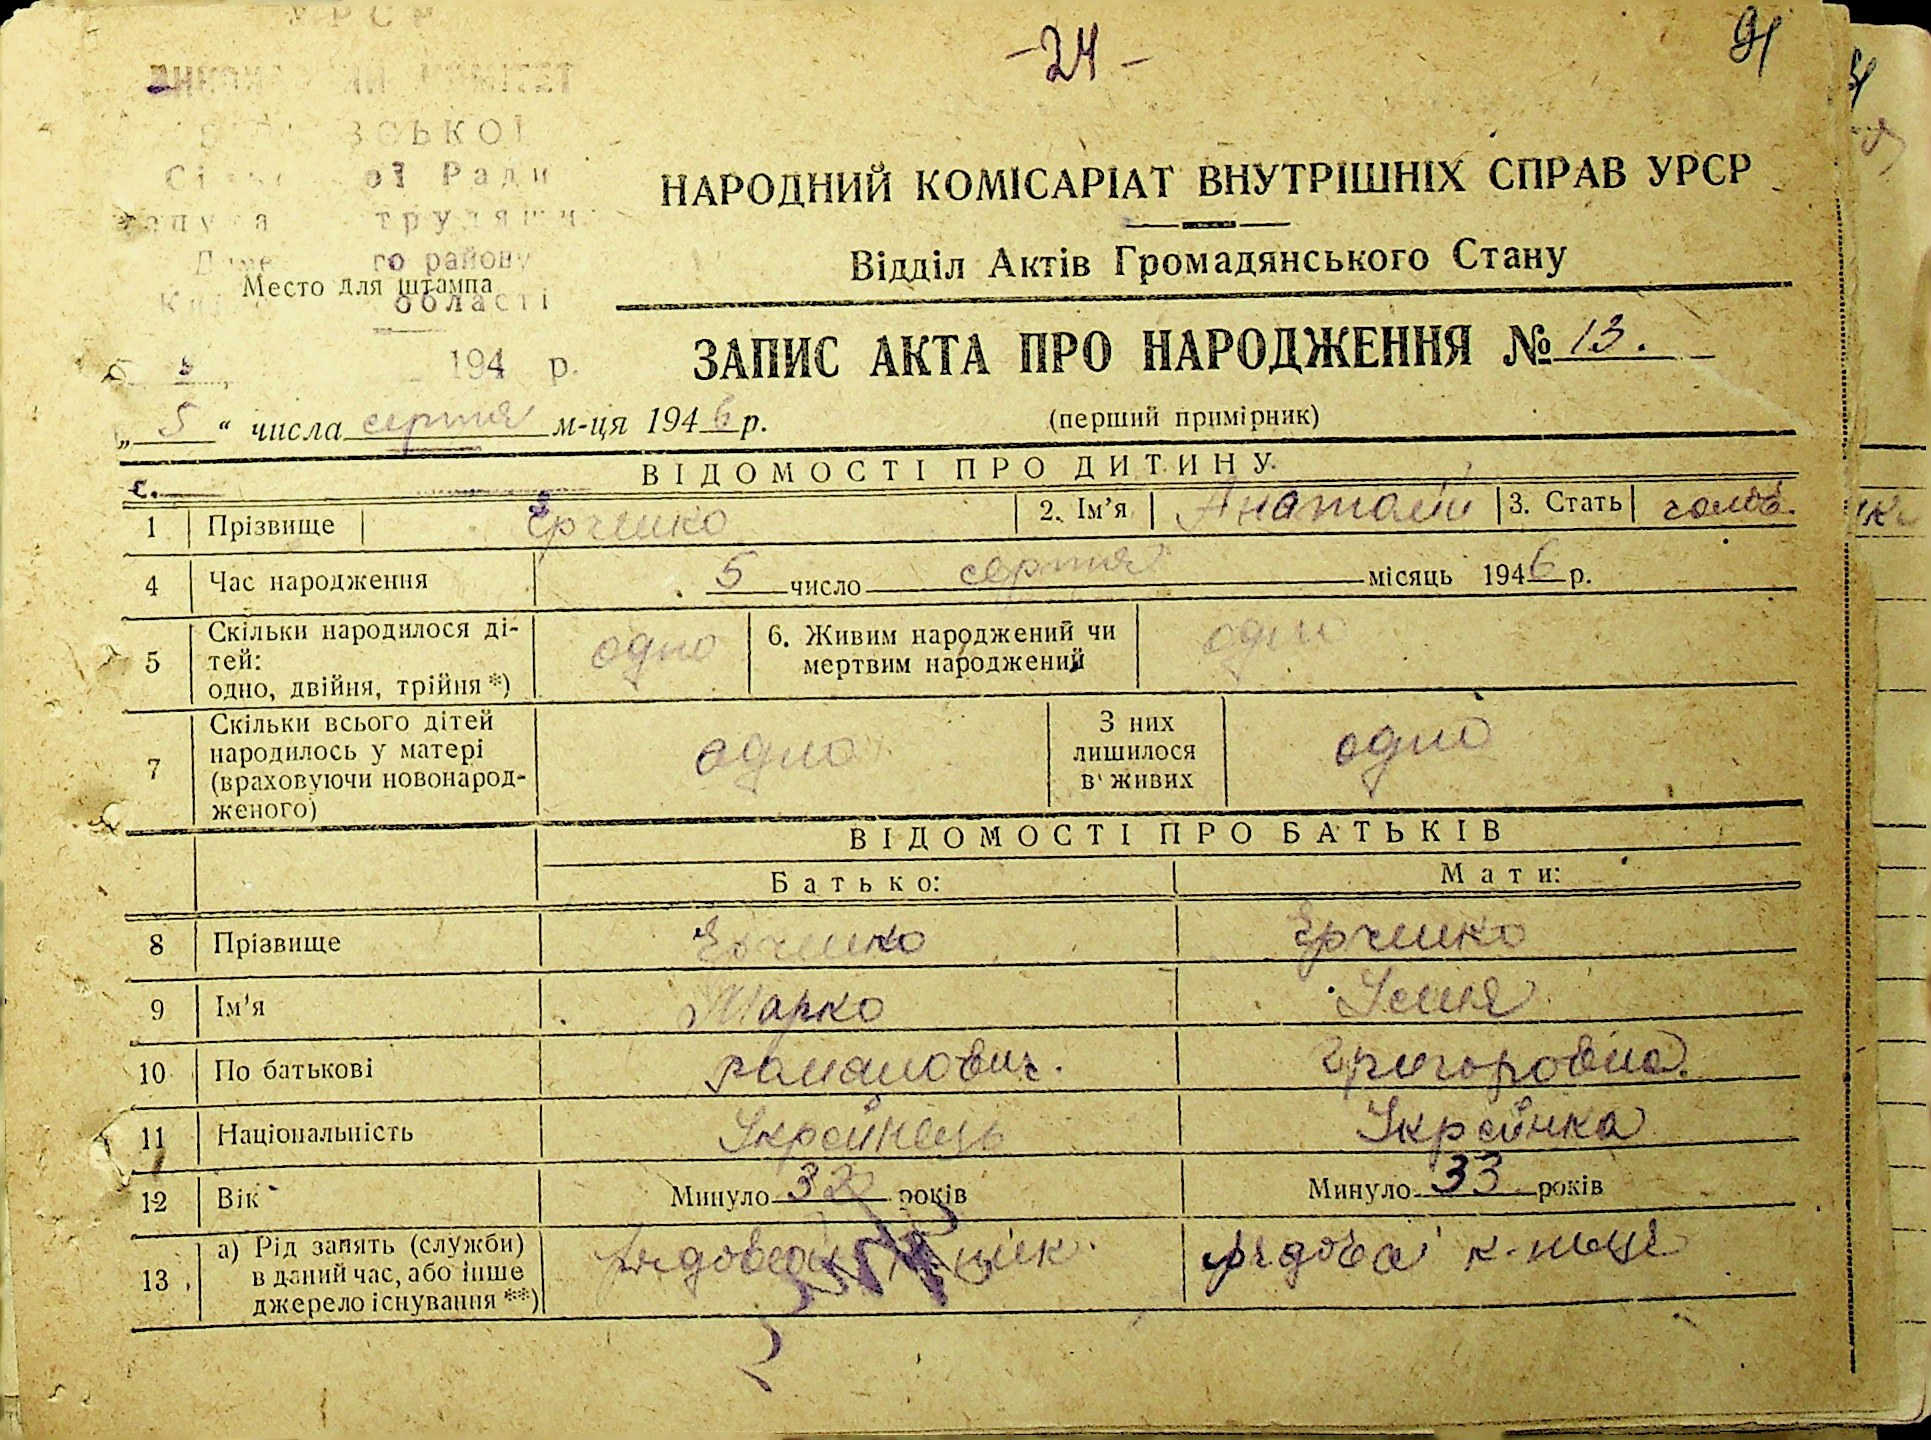 УРСР
-24-
91
ЗСЬКОЇ
ої Ради
трудящ
го району
Место для штампа
області
НАРОДНИЙ КОМІСАРІАТ ВНУТРІШНІХ СПРАВ УРСР
Відділ Актів Громадянського Стану
194 р.
ЗАПИС АКТА ПРО НАРОДЖЕННЯ № 13.
„ 5 “ числа серпня м-ця 1946 р.
(перший примірник)
ВІДОМОСТІ ПРО ДИТИНУ
с.
1 Прізвище 2. Ім’я Анатолій 3. Стать
4 Час народження 5 число серпня місяць 1946 р.
5 Скільки народилося ді-
тей:
одно, двійня, трійня *) одно
6. Живим народжений чи
мертвим народжений одно
7 Скільки всього дітей
народилось у матері
(враховуючи новонарод-
женого) одно
З них
лишилося
в живих одно
ВІДОМОСТІ ПРО БАТЬКІВ
Батько: Мати:
8 Прізвище
9 Ім’я Марко
10 По батькові романович. Григоровна.
11 Національність Украйнець Украйнка
12 Вік Минуло 32 років Минуло 33 років
13 а) Рід занять (служби)
в даний час, або інше
джерело існування **) рядова к-ниця